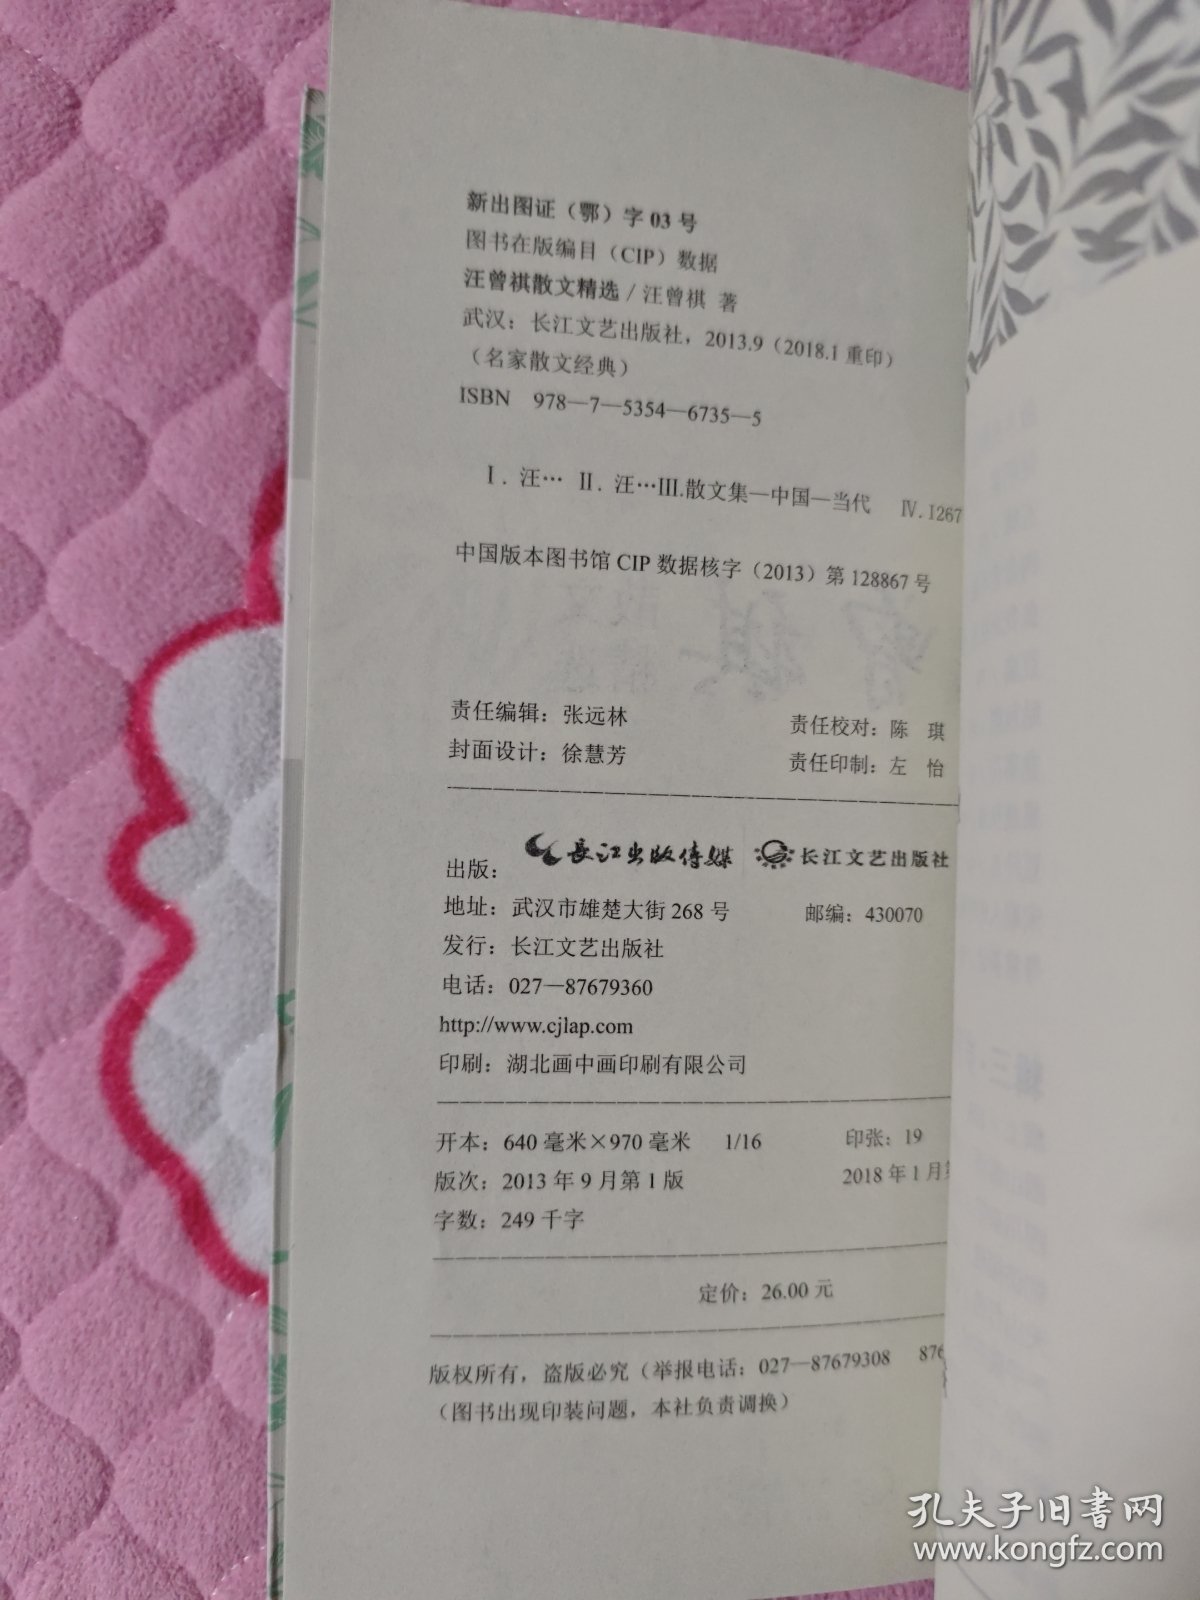 新出图证（鄂）字03号
图书在版编目（CIP）数据
汪曾祺散文精选/汪曾祺 著
武汉：长江文艺出版社，2013.9（2018.1重印）
（名家散文经典）
ISBN 978—7—5354—6735—5
Ⅰ．汪… Ⅱ．汪…Ⅲ.散文集—中国—当代 Ⅳ.I267
中国版本图书馆CIP数据核字（2013）第128867号
责任编辑：张远林 责任校对：陈 琪
封面设计：徐慧芳 责任印制：左 怡
出版：长江出版传媒 长江文艺出版社
地址：武汉市雄楚大街268号 邮编：430070
发行：长江文艺出版社
电话：027—87679360
http://www.cjlap.com
印刷：湖北画中画印刷有限公司
开本：640毫米×970毫米 1/16 印张：19
版次：2013年9月第1版 2018年1月
字数：249千字
定价：26.00元
版权所有，盗版必究（举报电话：027—87679308 876
（图书出现印装问题，本社负责调换）
孔夫子旧书网
www.kongfz.com